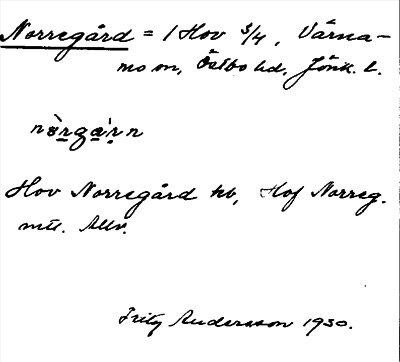 Norregård = 1 Hov 3/4, Värna-
mo sn, Östbo hd, Jönk. l.
Hov Norregård kb, Hof Norreg.
Fritz Andersson 1930.